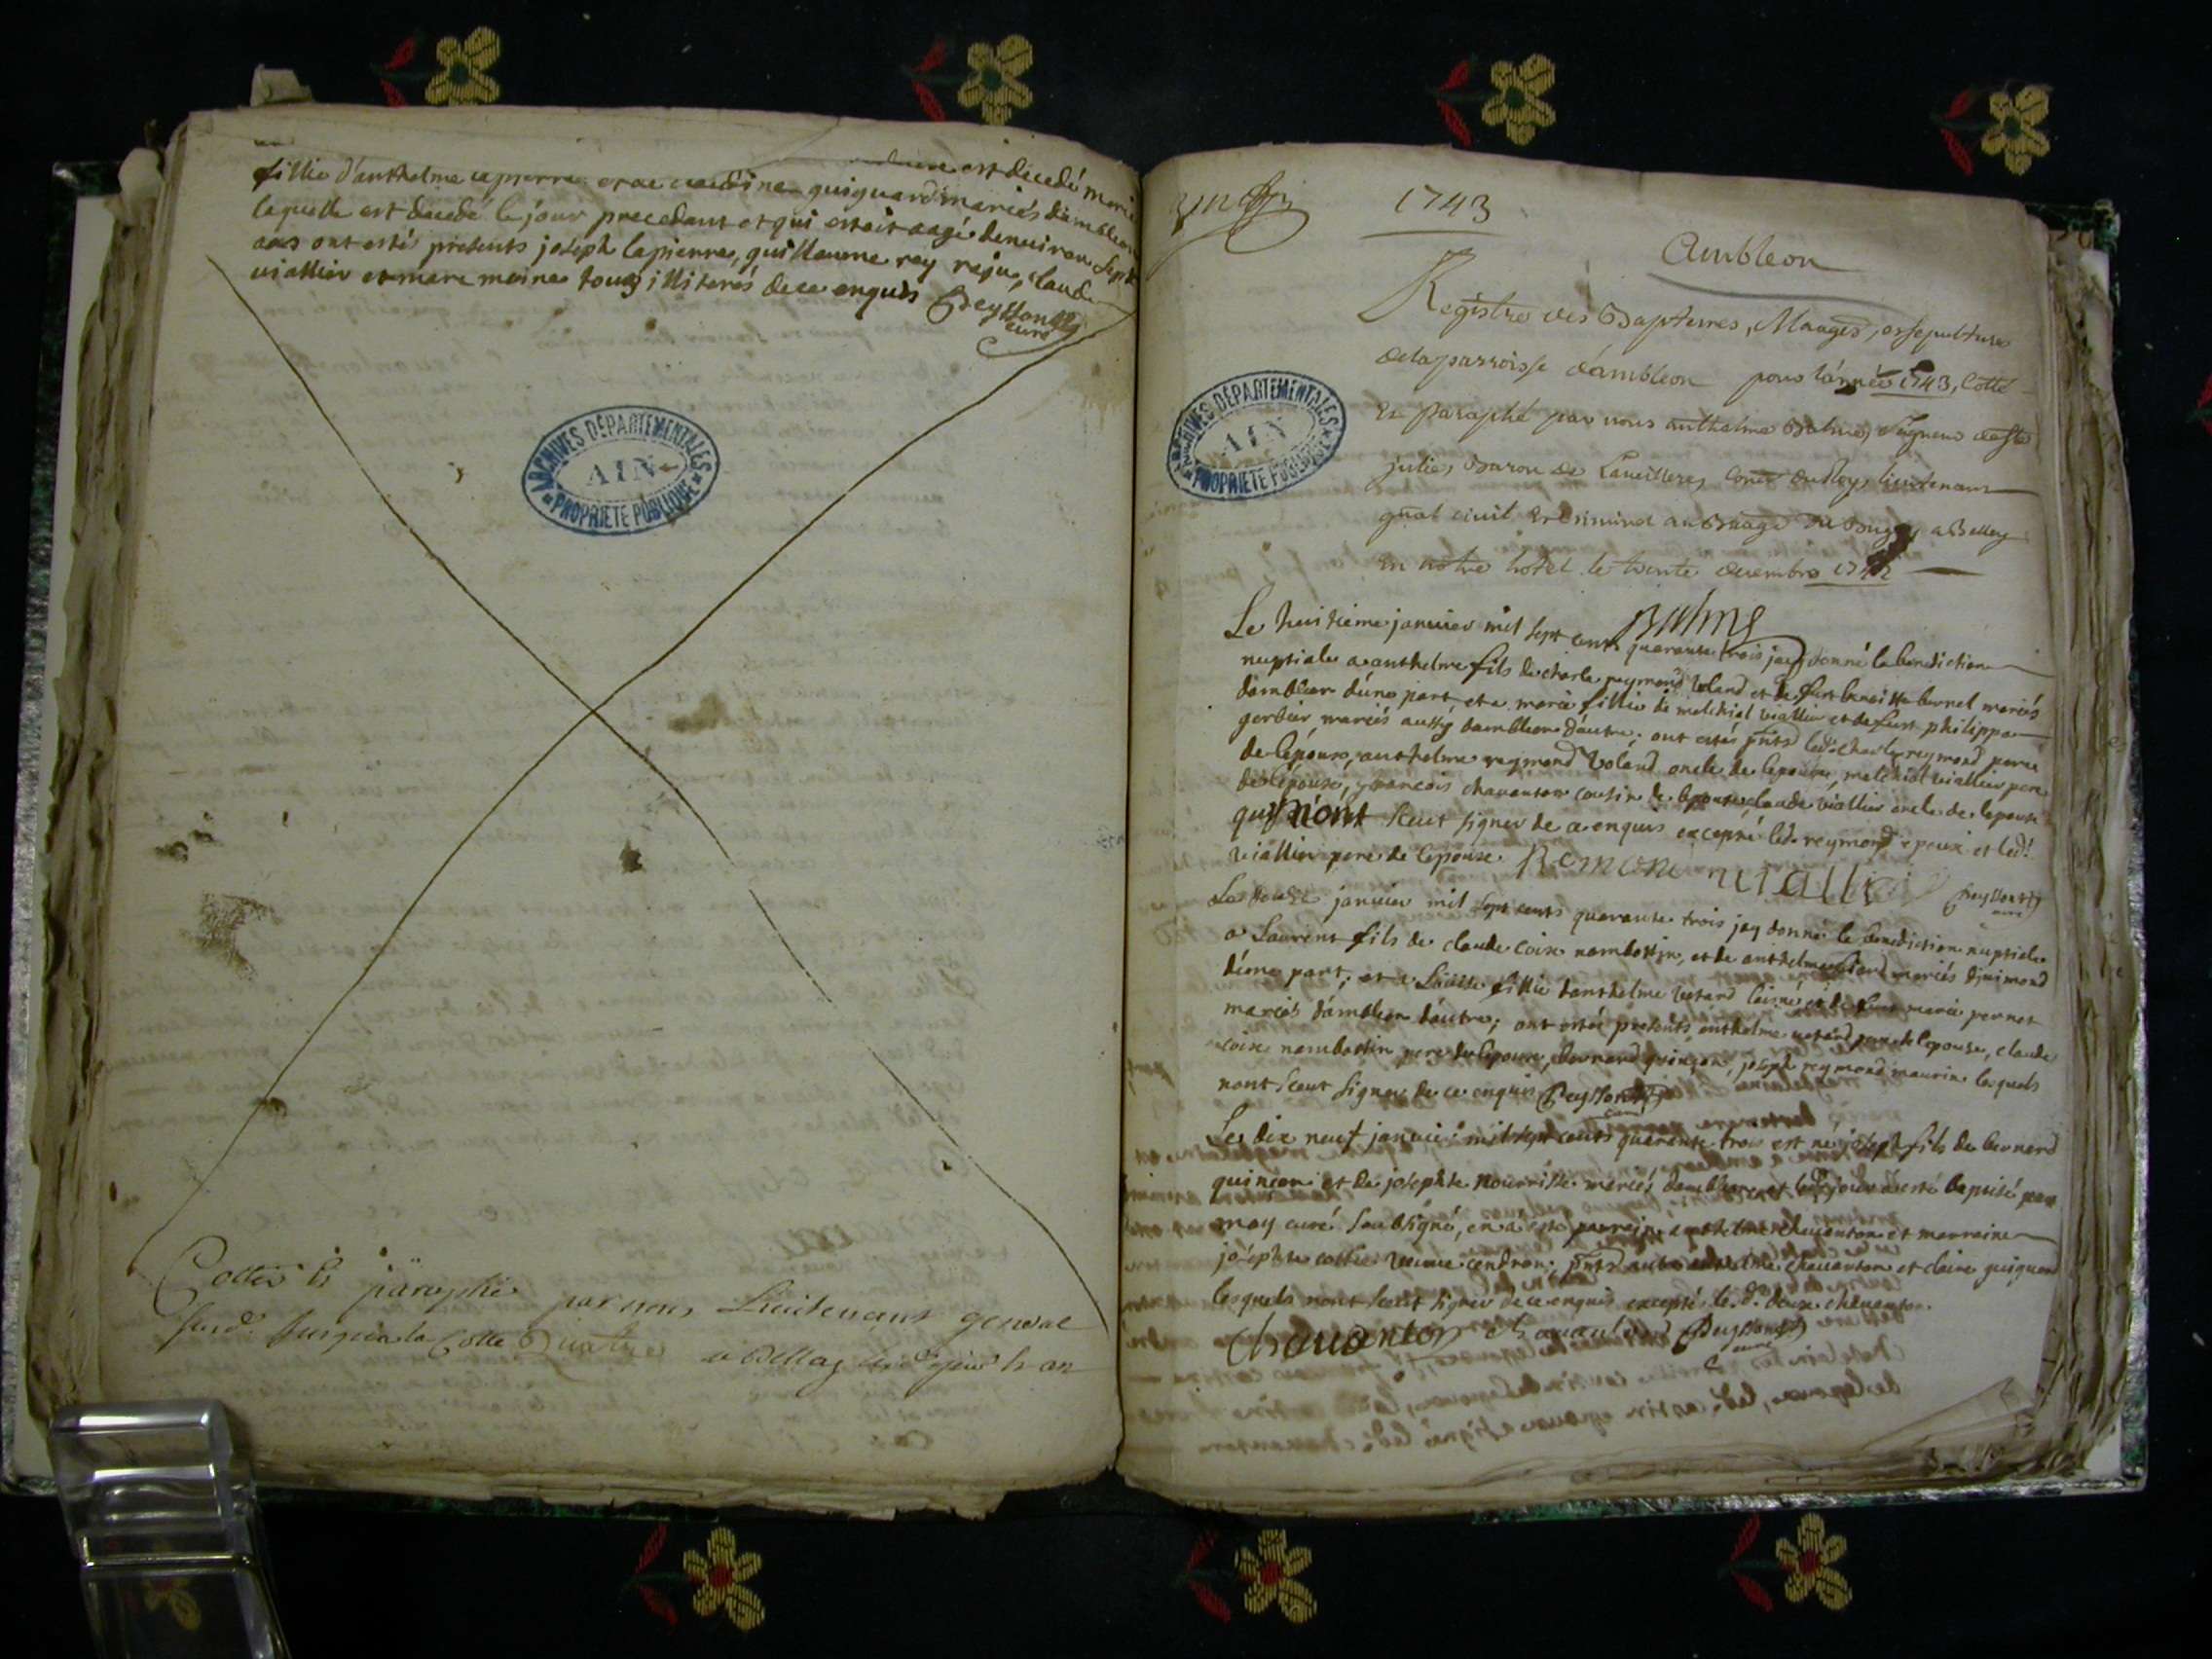 est decedé marie
fillie d'anthelme lapierre et de claudine quiquard mariés d'ambleon
laquelle est decedé le jour precedant et qui estoit aagé denuiron sept
ans ont estés presents joseph lapierre, guillaume rey reju, claude
uiallier et marc moine tous illiterés de ce enquis Peyssonet
curé
ARCHIVES DÉPARTEMENTALES
AIN
PROPRIÉTÉ PUBLIQUE
Cotté et paraphé par nous Lieutenant general
susd. jusqu'a la Cotte quatre a Belley les d. jour et an
1743
Ambleon
Registre des Baptemes, Mariages, et sepultures
de la parroisse d'ambleon pour l'année 1743, Cotté
et Paraphé par nous anthelme Balme, Seigneur de ste
julie, Baron de Coner du Roy, lieutenant
gñal civil et criminel au Bailiage du Bugey a Belley
en notre hotel le trente decembre 1742
Balme
ARCHIVES DÉPARTEMENTALES
AIN
PROPRIÉTÉ PUBLIQUE
Le huitieme januier mil sept cents quarante trois jay donné la benediction
nuptiale a anthelme fils de charle reymond Voland et de fust benoitte burnel mariés
dambleon d'une part, et a marie fillie de melchial viallier et de fust philippa
gerbier mariés aussy dambleon d'autre; ont estés pnts led. charle reymond pere
de lepoux, anthelme reymond Voland oncle de lepoux, melchial viallier pere
de l'epouse, françois chauanton cousin de lepouse claude viallier oncle de lepouse
qui n'ont sceut signer de ce enquis excepté led. reymond epoux et led.
viallier pere de lepouse. Remon uiallier Peyssonet
curé
Le douze januier mil sept cents quarante trois jay donné la benediction nuptiale
a Laurent fils de claude Coise nambottin, et de anthelme mariés
d'une part, et a fillie d'anthelme Vetard lainé et de fust marie pernet
mariés d'ambleon d'autre; ont estés presents anthelme vetard pere de lepouse, claude
coise nambottin pere de lepoux, bernard quinson, joseph reymond maurin lesquels
nont sceut signer de ce enquis Peyssonet
curé
Le dix neuf januier mil sept cents quarante trois est né joseph fils de bernard
quinson et de josephte Nourrisse mariés dambleon et led. jour a esté baptisé par
moy curé soubsigné, en a esté parrain anthelme chauanton et marraine
josephte cottier veuve cendron; pnts autre anthelme chauanton et claire quiquard
lesquels nont sceut signer de ce enquis exceptés les d. deux chauanton.
Chauanton chauanton Peyssonet
curé